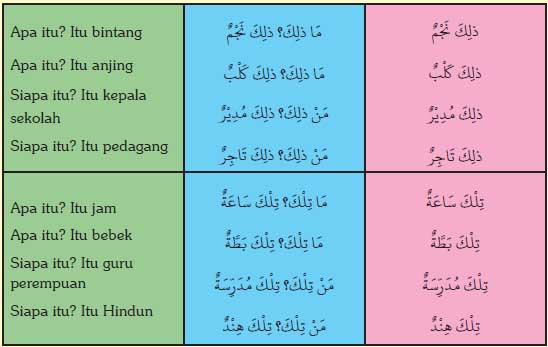 Apa itu? Itu bintang
مَا ذٰلِكَ؟ ذٰلِكَ نَجْمٌ
ذٰلِكَ نَجْمٌ
Apa itu? Itu anjing
مَا ذٰلِكَ؟ ذٰلِكَ كَلْبٌ
ذٰلِكَ كَلْبٌ
Siapa itu? Itu kepala
sekolah
مَنْ ذٰلِكَ؟ ذٰلِكَ مُدِيْرٌ
ذٰلِكَ مُدِيْرٌ
Siapa itu? Itu pedagang
مَنْ ذٰلِكَ؟ ذٰلِكَ تَاجِرٌ
ذٰلِكَ تَاجِرٌ
Apa itu? Itu jam
مَا تِلْكَ؟ تِلْكَ سَاعَةٌ
تِلْكَ سَاعَةٌ
Apa itu? Itu bebek
مَا تِلْكَ؟ تِلْكَ بَطَّةٌ
تِلْكَ بَطَّةٌ
Siapa itu? Itu guru
perempuan
مَنْ تِلْكَ؟ تِلْكَ مُدَرِّسَةٌ
تِلْكَ مُدَرِّسَةٌ
Siapa itu? Itu Hindun
مَنْ تِلْكَ؟ تِلْكَ هِنْدٌ
تِلْكَ هِنْدٌ